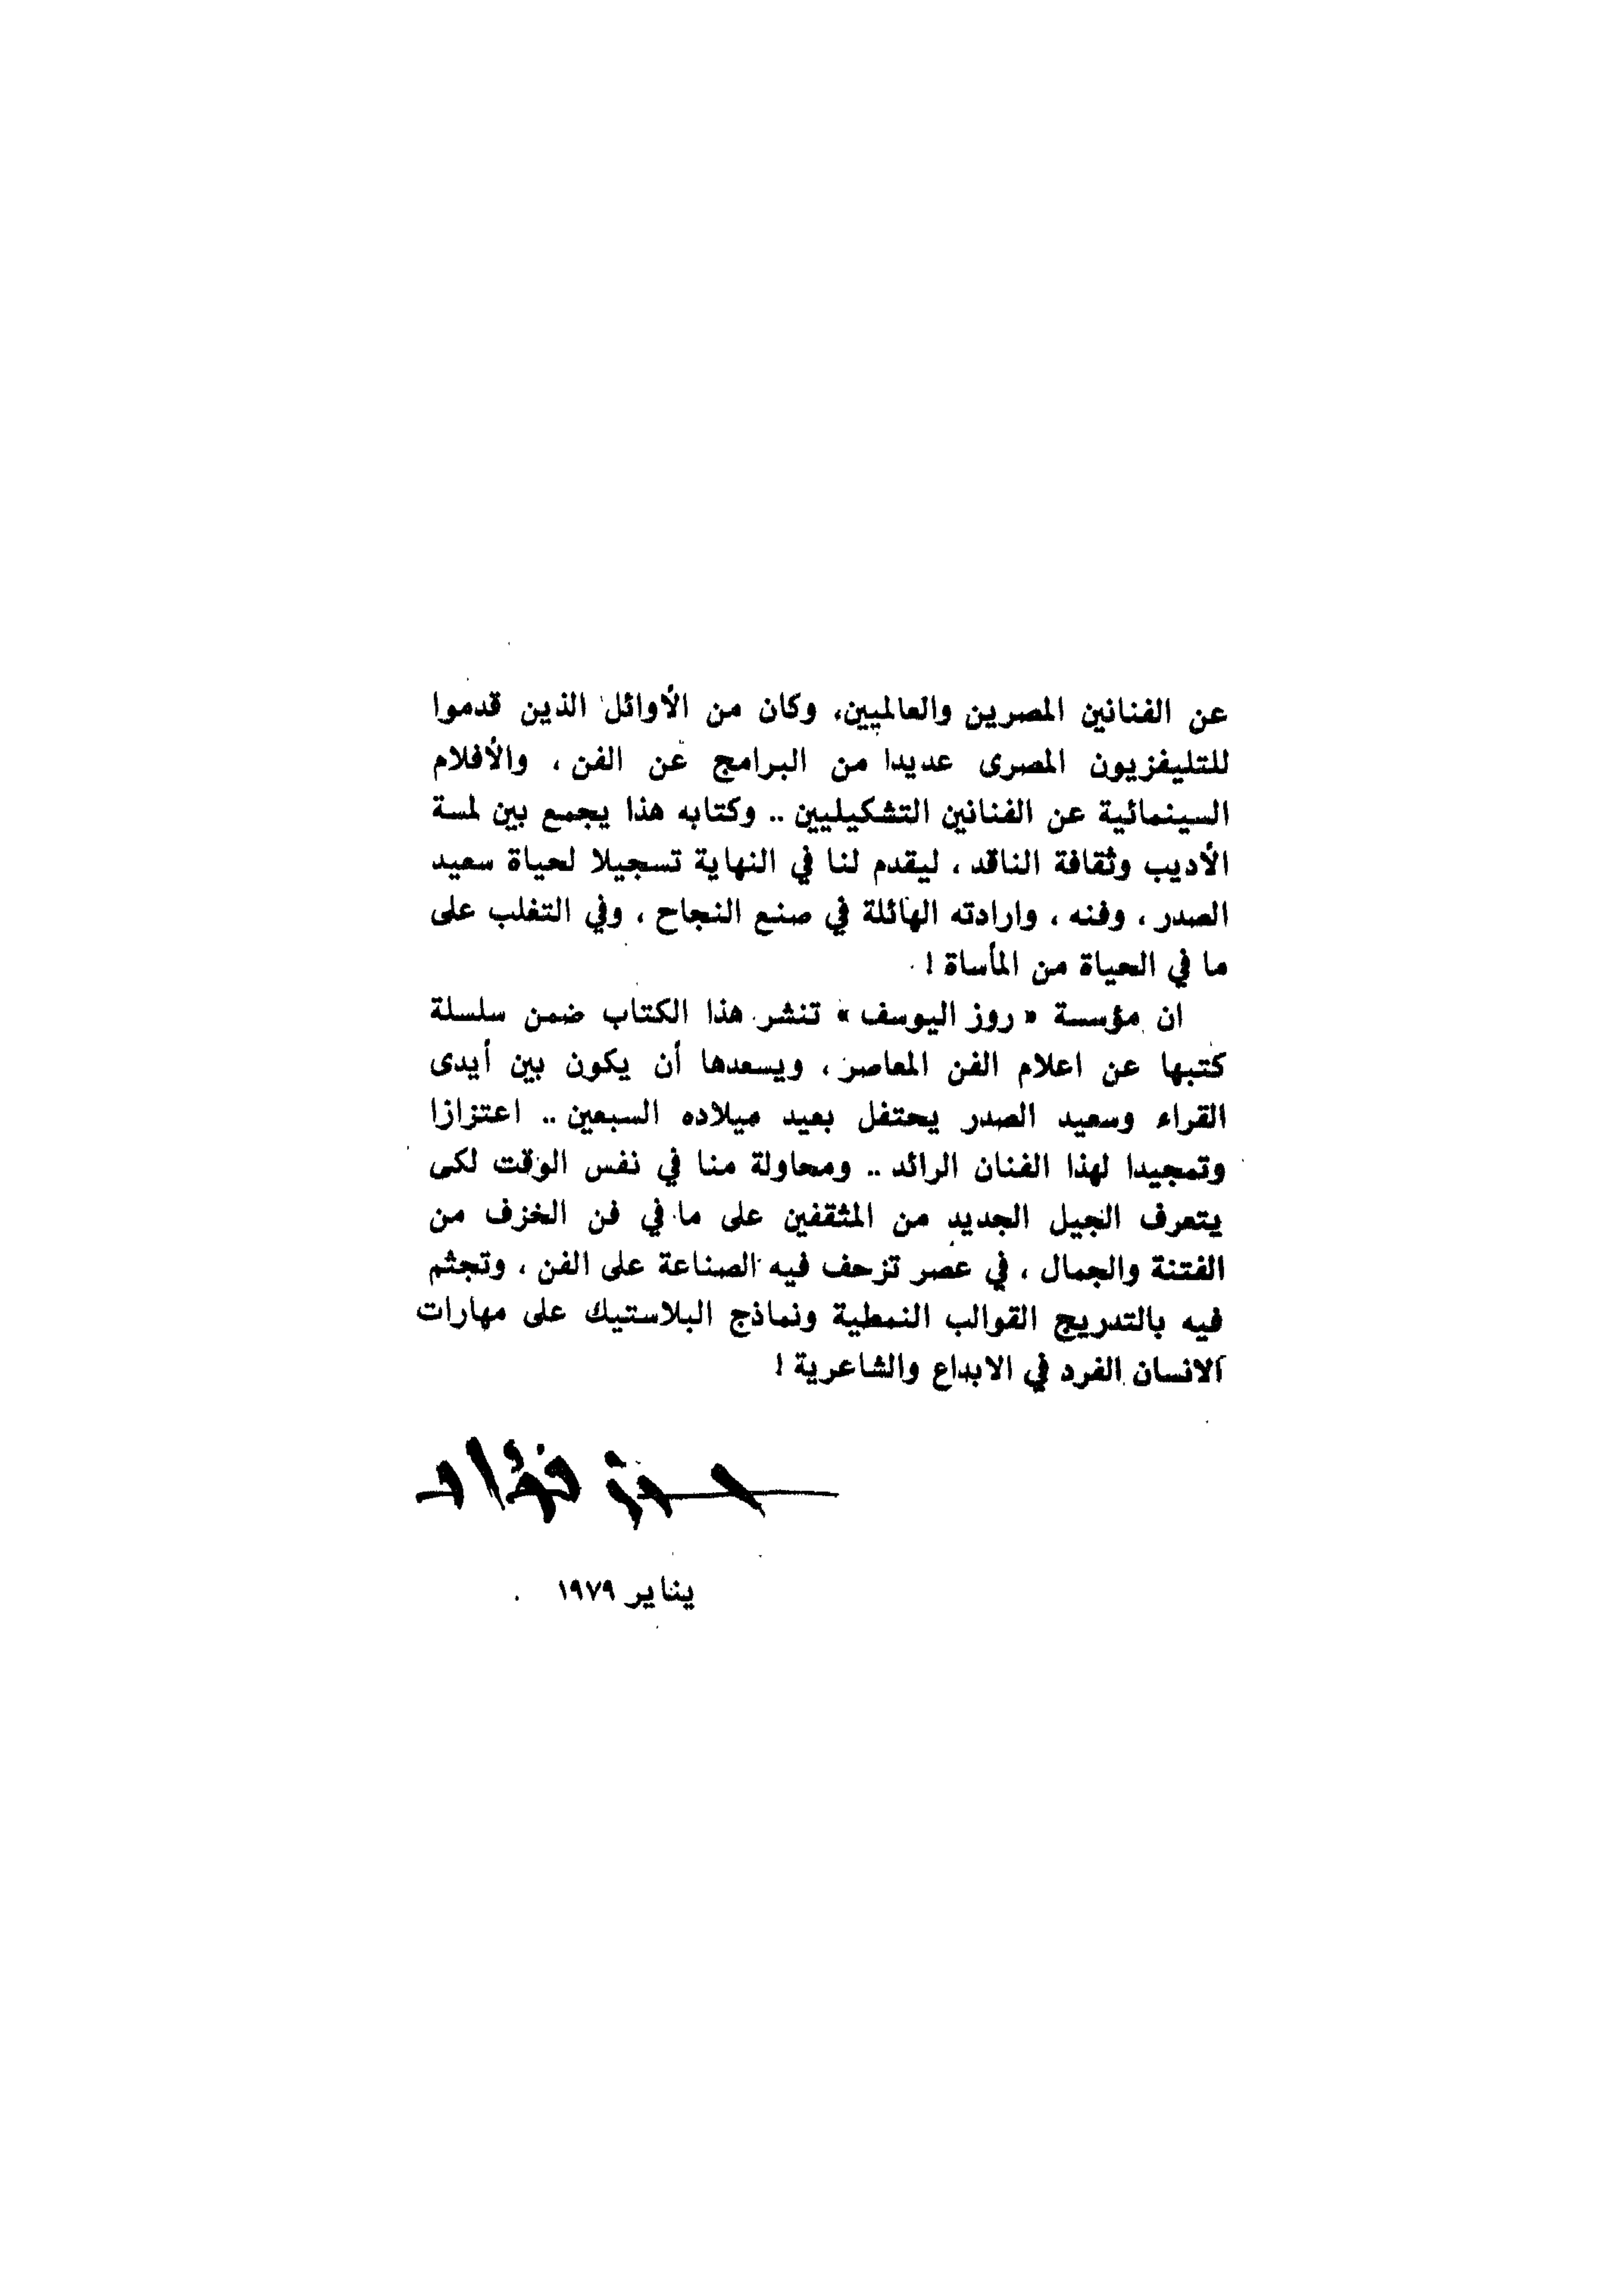 عن الفنانين المصرين والعالميين، وكان من الأوائل الذين قدموا
للتليفزيون المصرى عديدا من البرامج عن الفن ، والأفلام
السينمائية عن الفنانين التشكيليين .. وكتابه هذا يجمع بين لمسة
الأديب وثقافة الناقد ، ليقدم لنا في النهاية تسجيلا لحياة سعيد
الصدر ، وفنه ، وارادته الهائلة في صنع النجاح ، وفي التغلب على
ما في الحياة من المأساة !
ان مؤسسة « روز اليوسف » تنشر هذا الكتاب ضمن سلسلة
كتبها عن اعلام الفن المعاصر ، ويسعدها أن يكون بين أيدى
القراء وسعيد الصدر يحتفل بعيد ميلاده السبعين .. اعتزازا
وتمجيدا لهذا الفنان الرائد .. ومحاولة منا في نفس الوقت لكى
يتعرف الجيل الجديد من المثقفين على ما في فن الخزف من
الفتنة والجمال ، في عصر تزحف فيه الصناعة على الفن ، وتجثم
فيه بالتدريج القوالب النمطية ونماذج البلاستيك على مهارات
الانسان الفرد في الابداع والشاعرية !
حسن فؤاد
يناير ١٩٧٩